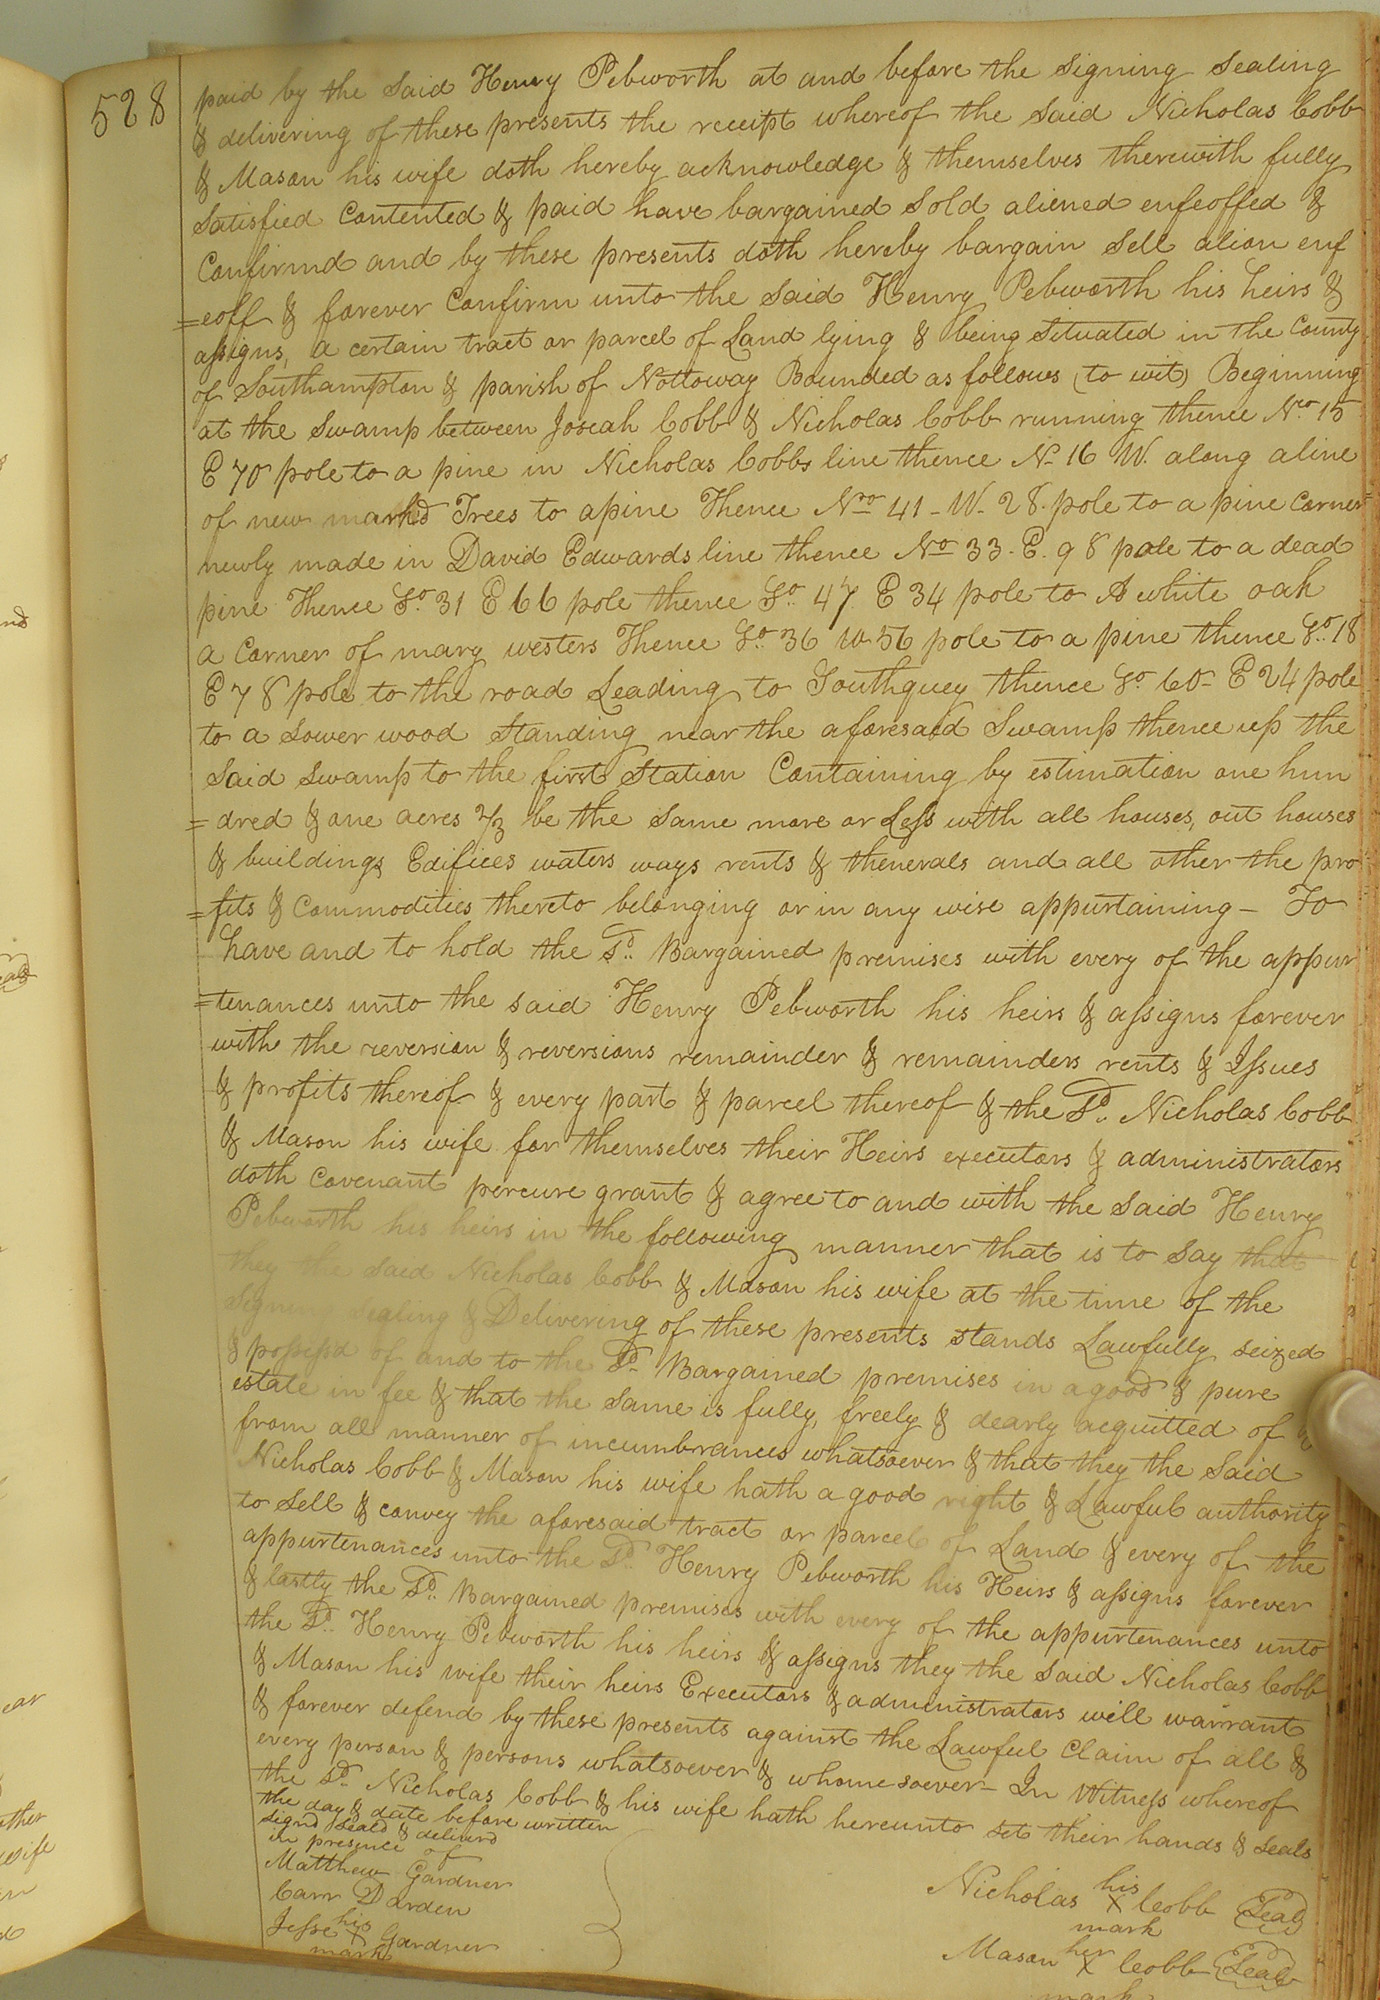 528
paid by the Said Henry Pebworth at and before the Signing Sealing
& delivering of these presents the receipt whereof the Said Nicholas Cobb
& Mason his wife doth hereby acknowledge & themselves therewith fully
Satisfied Contented & paid have bargained Sold aliened enfeoffed &
Confirmd and by these presents doth hereby bargain Sell alion enf
=eoff & forever Confirm unto the Said Henry Pebworth his heirs &
assigns, a certain tract or parcel of Land lying & being Situated in the County
of Southampton & parish of Nottoway Bounded as follows (to wit) Beginning
at the Swamp between Joseah Cobb & Nicholas Cobb running thence No 15
E 70 pole to a pine in Nicholas Cobbs line thence N 16 W. along a line
of new markd Trees to apine Thence No 41 - W - 28 pole to a pine Corner
newly made in David Edwards line thence No 33 - E. 98 pole to a dead
pine Thence So. 31 E 66 pole thence So. 47 E 34 pole to A white oak
a Corner of mary westers Thence So. 36 W 56 pole to a pine thence So. 18
E 78 pole to the road Leading to Southquey thence So 60 - E 24 pole
to a Sower wood Standing near the aforesaid Swamp thence up the
Said Swamp to the first Station Containing by estimation one hun
=dred & one acres 2/3 be the Same more or Less with all houses, out houses
& buildings Edifices waters ways rents & thenerals and all other the pro
=fits & Commodities thereto belonging or in any wise appurtaining - To
have and to hold the Sd. Bargained premises with every of the appur
=tenances unto the said Henry Pebworth his heirs & assigns forever
with the reversion & reversions remainder & remainders rents & Issues
& profits thereof & every part & parcel thereof & the Sd. Nicholas Cobb
& Mason his wife for themselves their Heirs executors & administrators
doth Covenant percure grant & agree to and with the Said Henry
Pebworth his heirs in the following manner that is to Say that
they the Said Nicholas Cobb & Mason his wife at the time of the
Signing Sealing & Delivering of these presents stands Lawfully seized
& possessd of and to the Sd. Bargained premises in a good & pure
estate in fee & that the Same is fully, freely & clearly acquitted of &
from all manner of incumbrances whatsoever & that they the Said
Nicholas Cobb & Mason his wife hath a good right & Lawful authority
to Sell & convey the aforesaid tract or parcel of Land & every of the
appurtenances unto the Sd. Henry Pebworth his Heirs & assigns forever
& lastly the Sd. Bargained premises with every of the appurtenances unto
the Sd. Henry Pebworth his heirs & assigns they the Said Nicholas Cobb
& Mason his wife their heirs Executors & administrators will warrant
& forever defend by these presents against the Lawful Claim of all &
every person & persons whatsoever & whomesoever - In Witness whereof
the Sd. Nicholas Cobb & his wife hath hereunto set their hands & Seals
the day & date before written
Signd Seald & deliverd
in presence of
Matthew Gardner
Carr Darden
Jesse his X mark Gardner
Nicholas his X mark Cobb Seal
Mason her X mark Cobb Seal